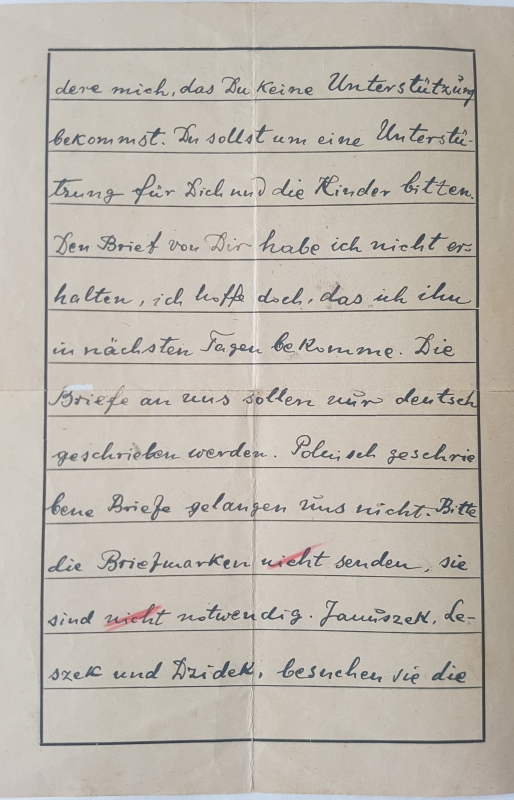 dere mich, das Du keine Unterstützung
bekommst. Du sollst um eine Unterstü-
tzung für Dich und die Kinder bitten.
Den Brief von Dir habe ich nicht er-
halten, ich hoffe doch, das ich ihn
in nächsten Tagen bekomme. Die
Briefe an uns sollen nur deutsch
geschrieben werden. Polnisch geschrie
bene Briefe gelangen uns nicht. Bitte
die Briefmarken nicht senden, sie
sind nicht notwendig. Januszek, Le-
szek und Dzidek, besuchen sie die